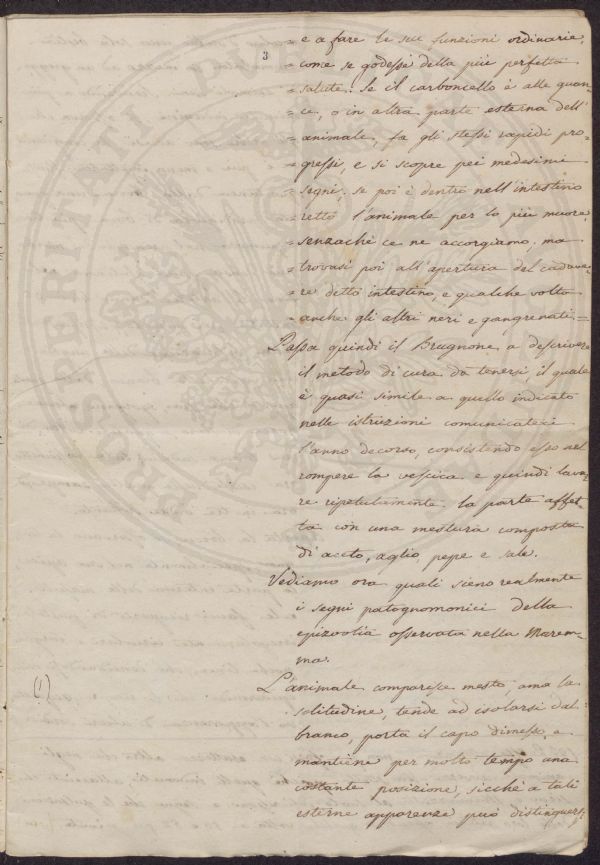 3
= e a fare le sue funzioni ordinarie,
= come se godesse della più perfetta
= salute. Se il carboncello è alle guan-
= ce, o in altra parte esterna dell'
= animale, fa gli stessi rapidi pro-
= gressi, e si scopre pei medesimi
= segni; se poi è dentro nell'intestino
= retto l'animale per lo più muore,
= senzachè ce ne accorgiamo, ma
= trovasi poi all'apertura del cadave-
= re detto intestino, e qualche volta
= anche gli altri neri e gangrenati. =
Passa quindi il Brugnone a descrivere
il metodo di cura da tenersi, il quale
è quasi simile a quello indicato
nelle istruzioni comunicateci
l'anno decorso, consistendo esso nel
rompere la vescica e quindi lava-
re ripetutamente la parte affet-
ta con una mestura composta
di aceto, aglio pepe e sale.
Vediamo ora quali sieno realmente
i segni patognomonici della
epizootia osservata nella Marem-
ma.
(1)
L'animale comparisce mesto, ama la
solitudine, tende ad isolarsi dal
branco, porta il capo dimesso, e
mantiene per molto tempo una
costante posizione, sicchè a tali
esterne apparenze può distinguersi
PROSPERITATI